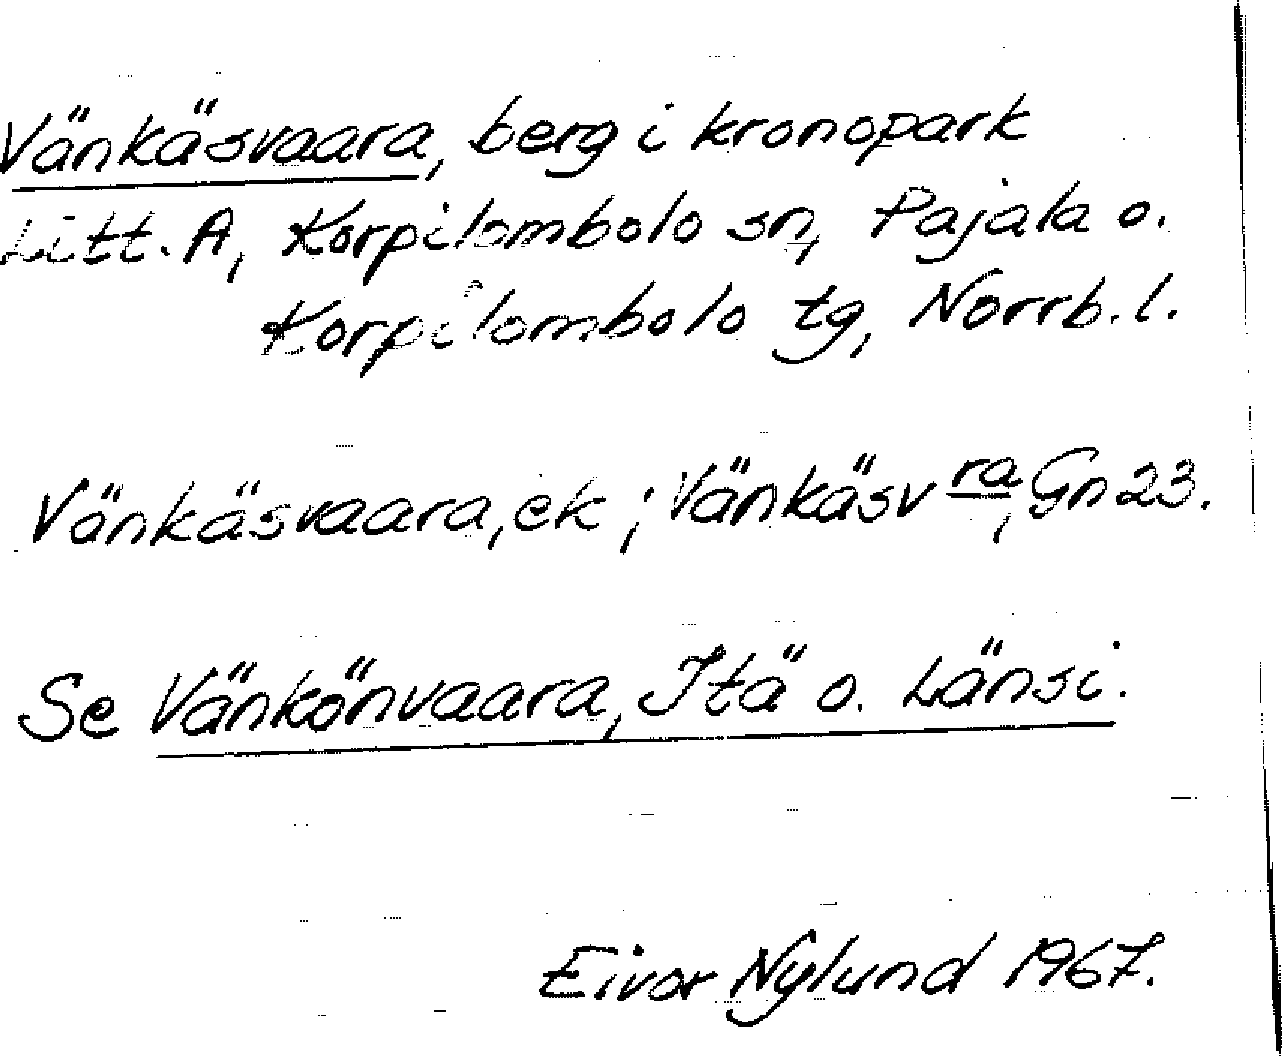 Vänkäsvaara, berg i kronopark
Litt. A, Korpilombolo sn, Pajala o.
Korpilombolo tg, Norrb. l.
Vänkäsvaara, ek; Vänkäsv ra, Gn 23.
Se Vänkönvaara, Itä o. Länsi.
Eivor Nylund 1967.